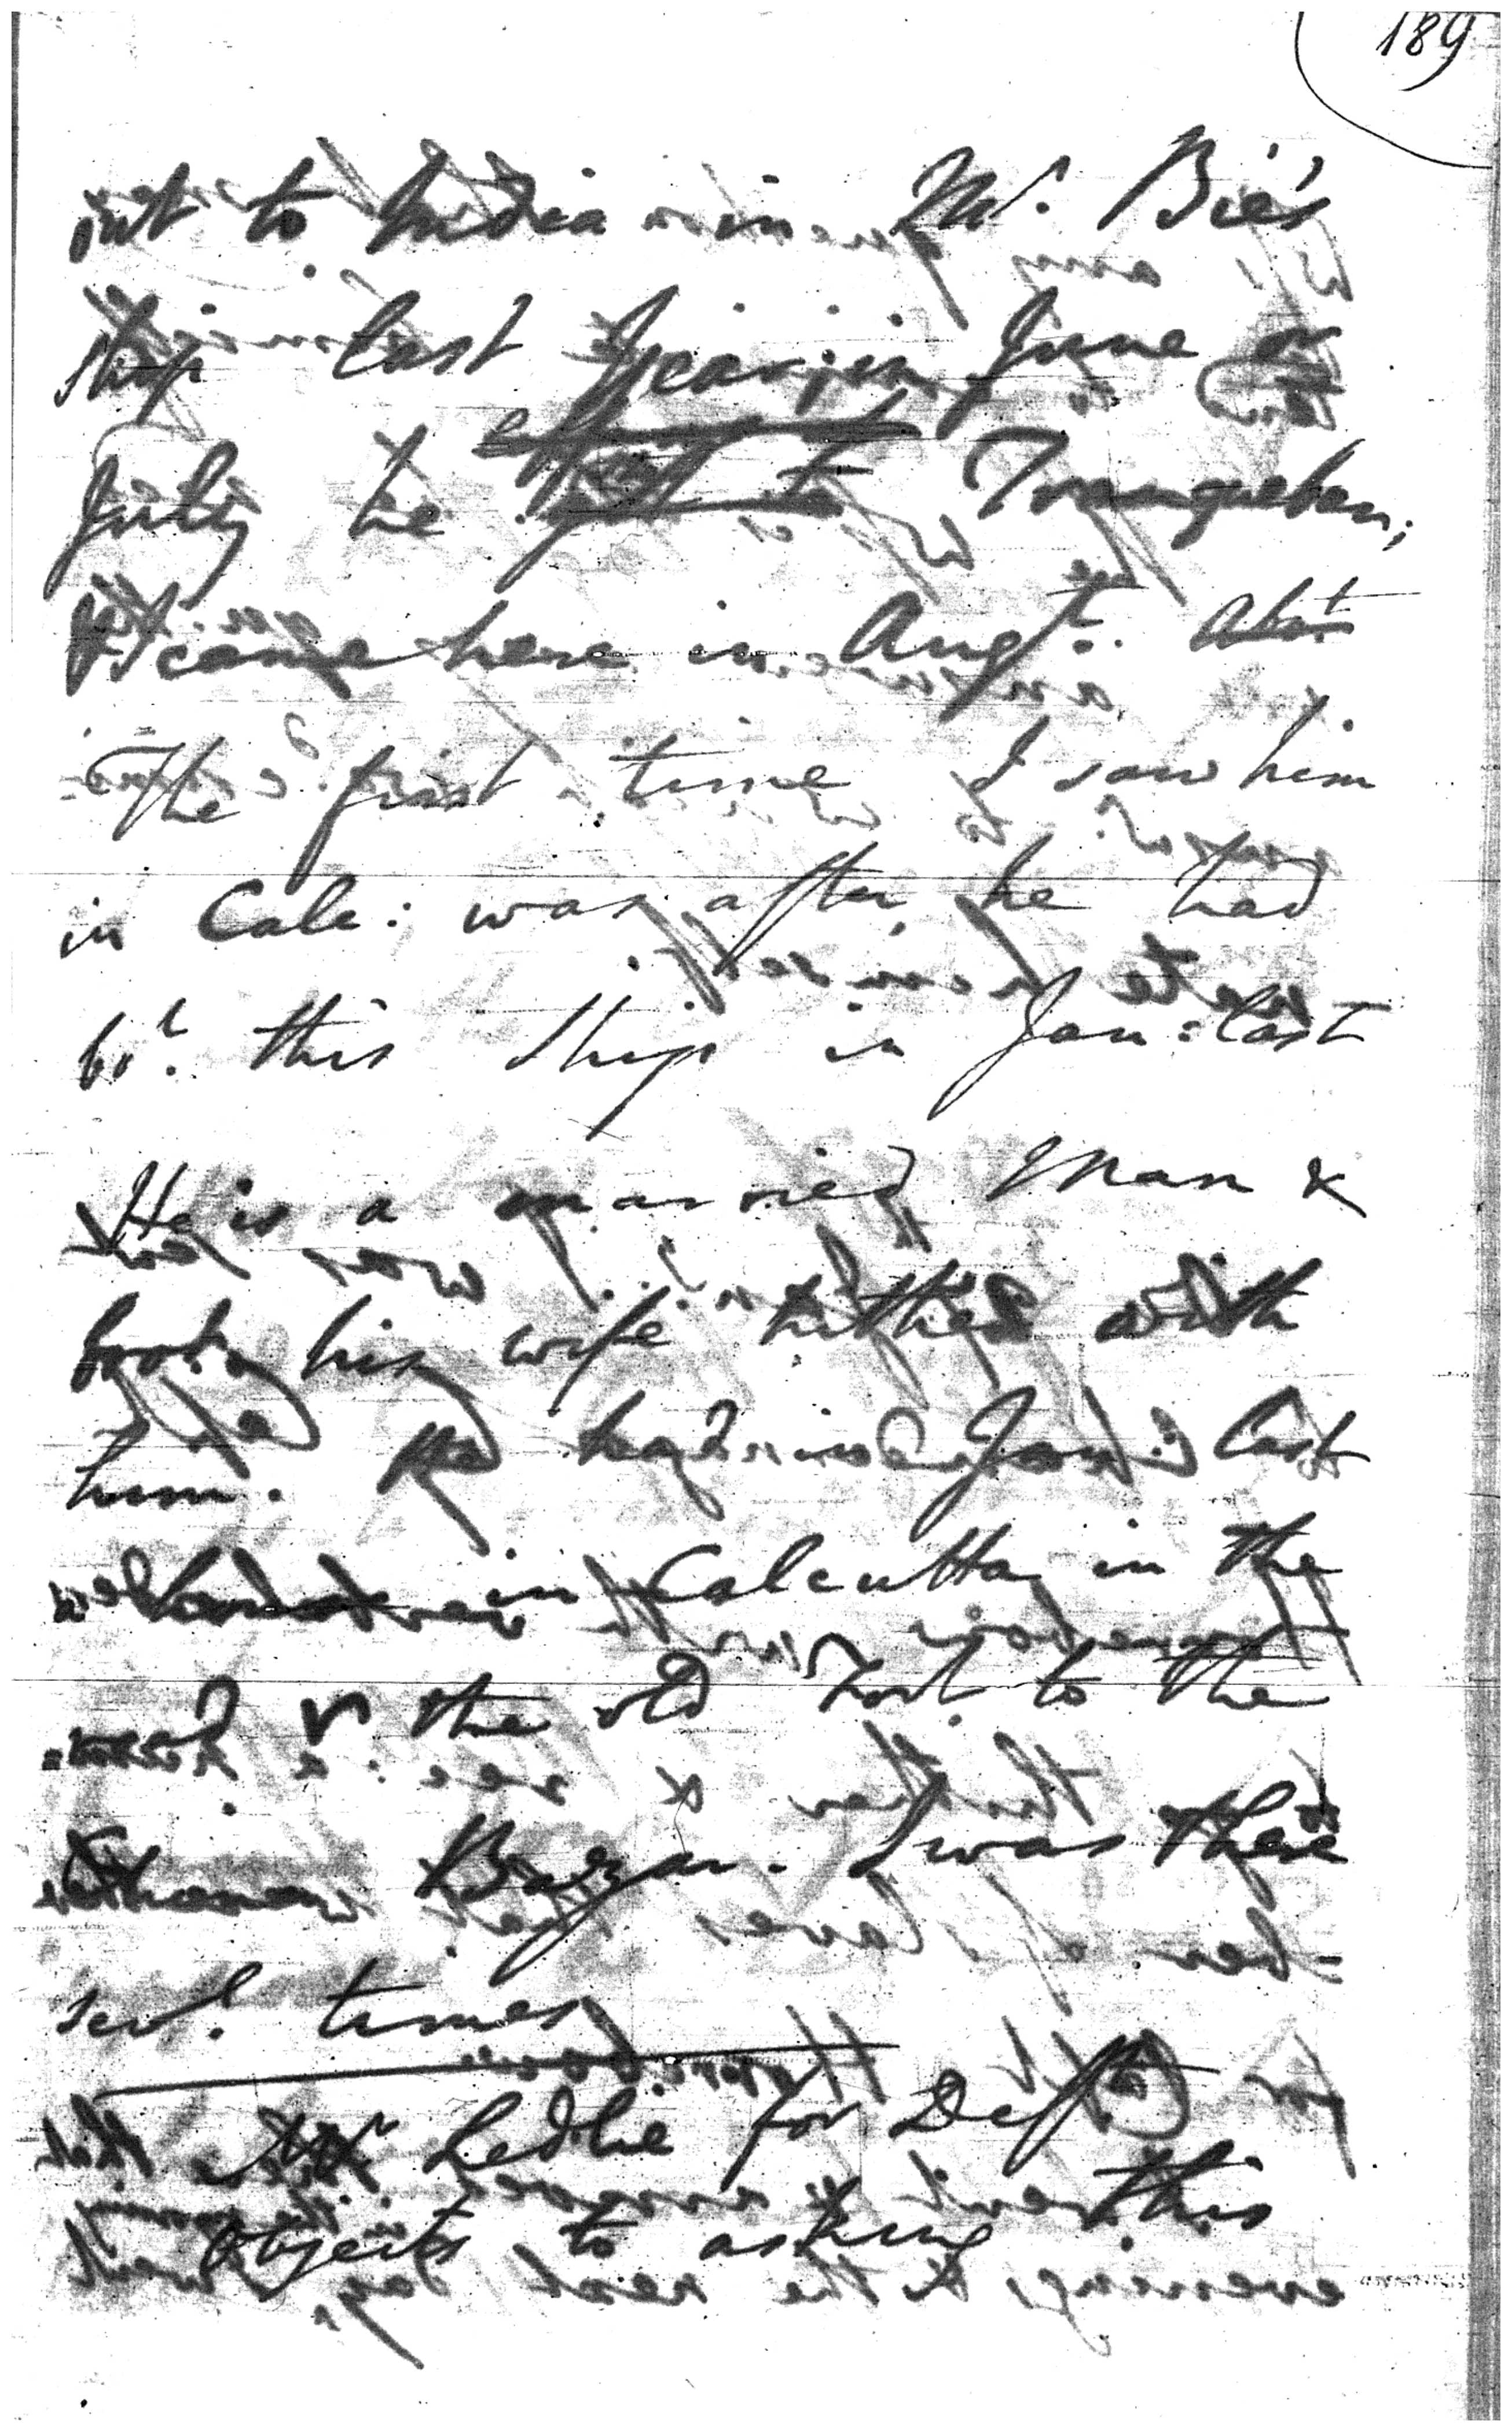 189
out to India in Mr. Bie's
ship last Year; in June or
July he left Tranquebar,
& came here in Augt. Abt
The first time I saw him
in Calc: was after he had
bot. this Ship in Jan: last
He is a married Man &
brot. his wife hither with
him. He lodg'd in Jan: last
in Calcutta in the
road fr the old Fort to the
Bazar. I was there
sevl. times
Mr Ledlie for Deft
objects to asking this